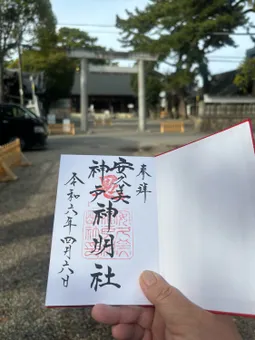 奉拝
安久美
神戸神明社
令和六年四月六日